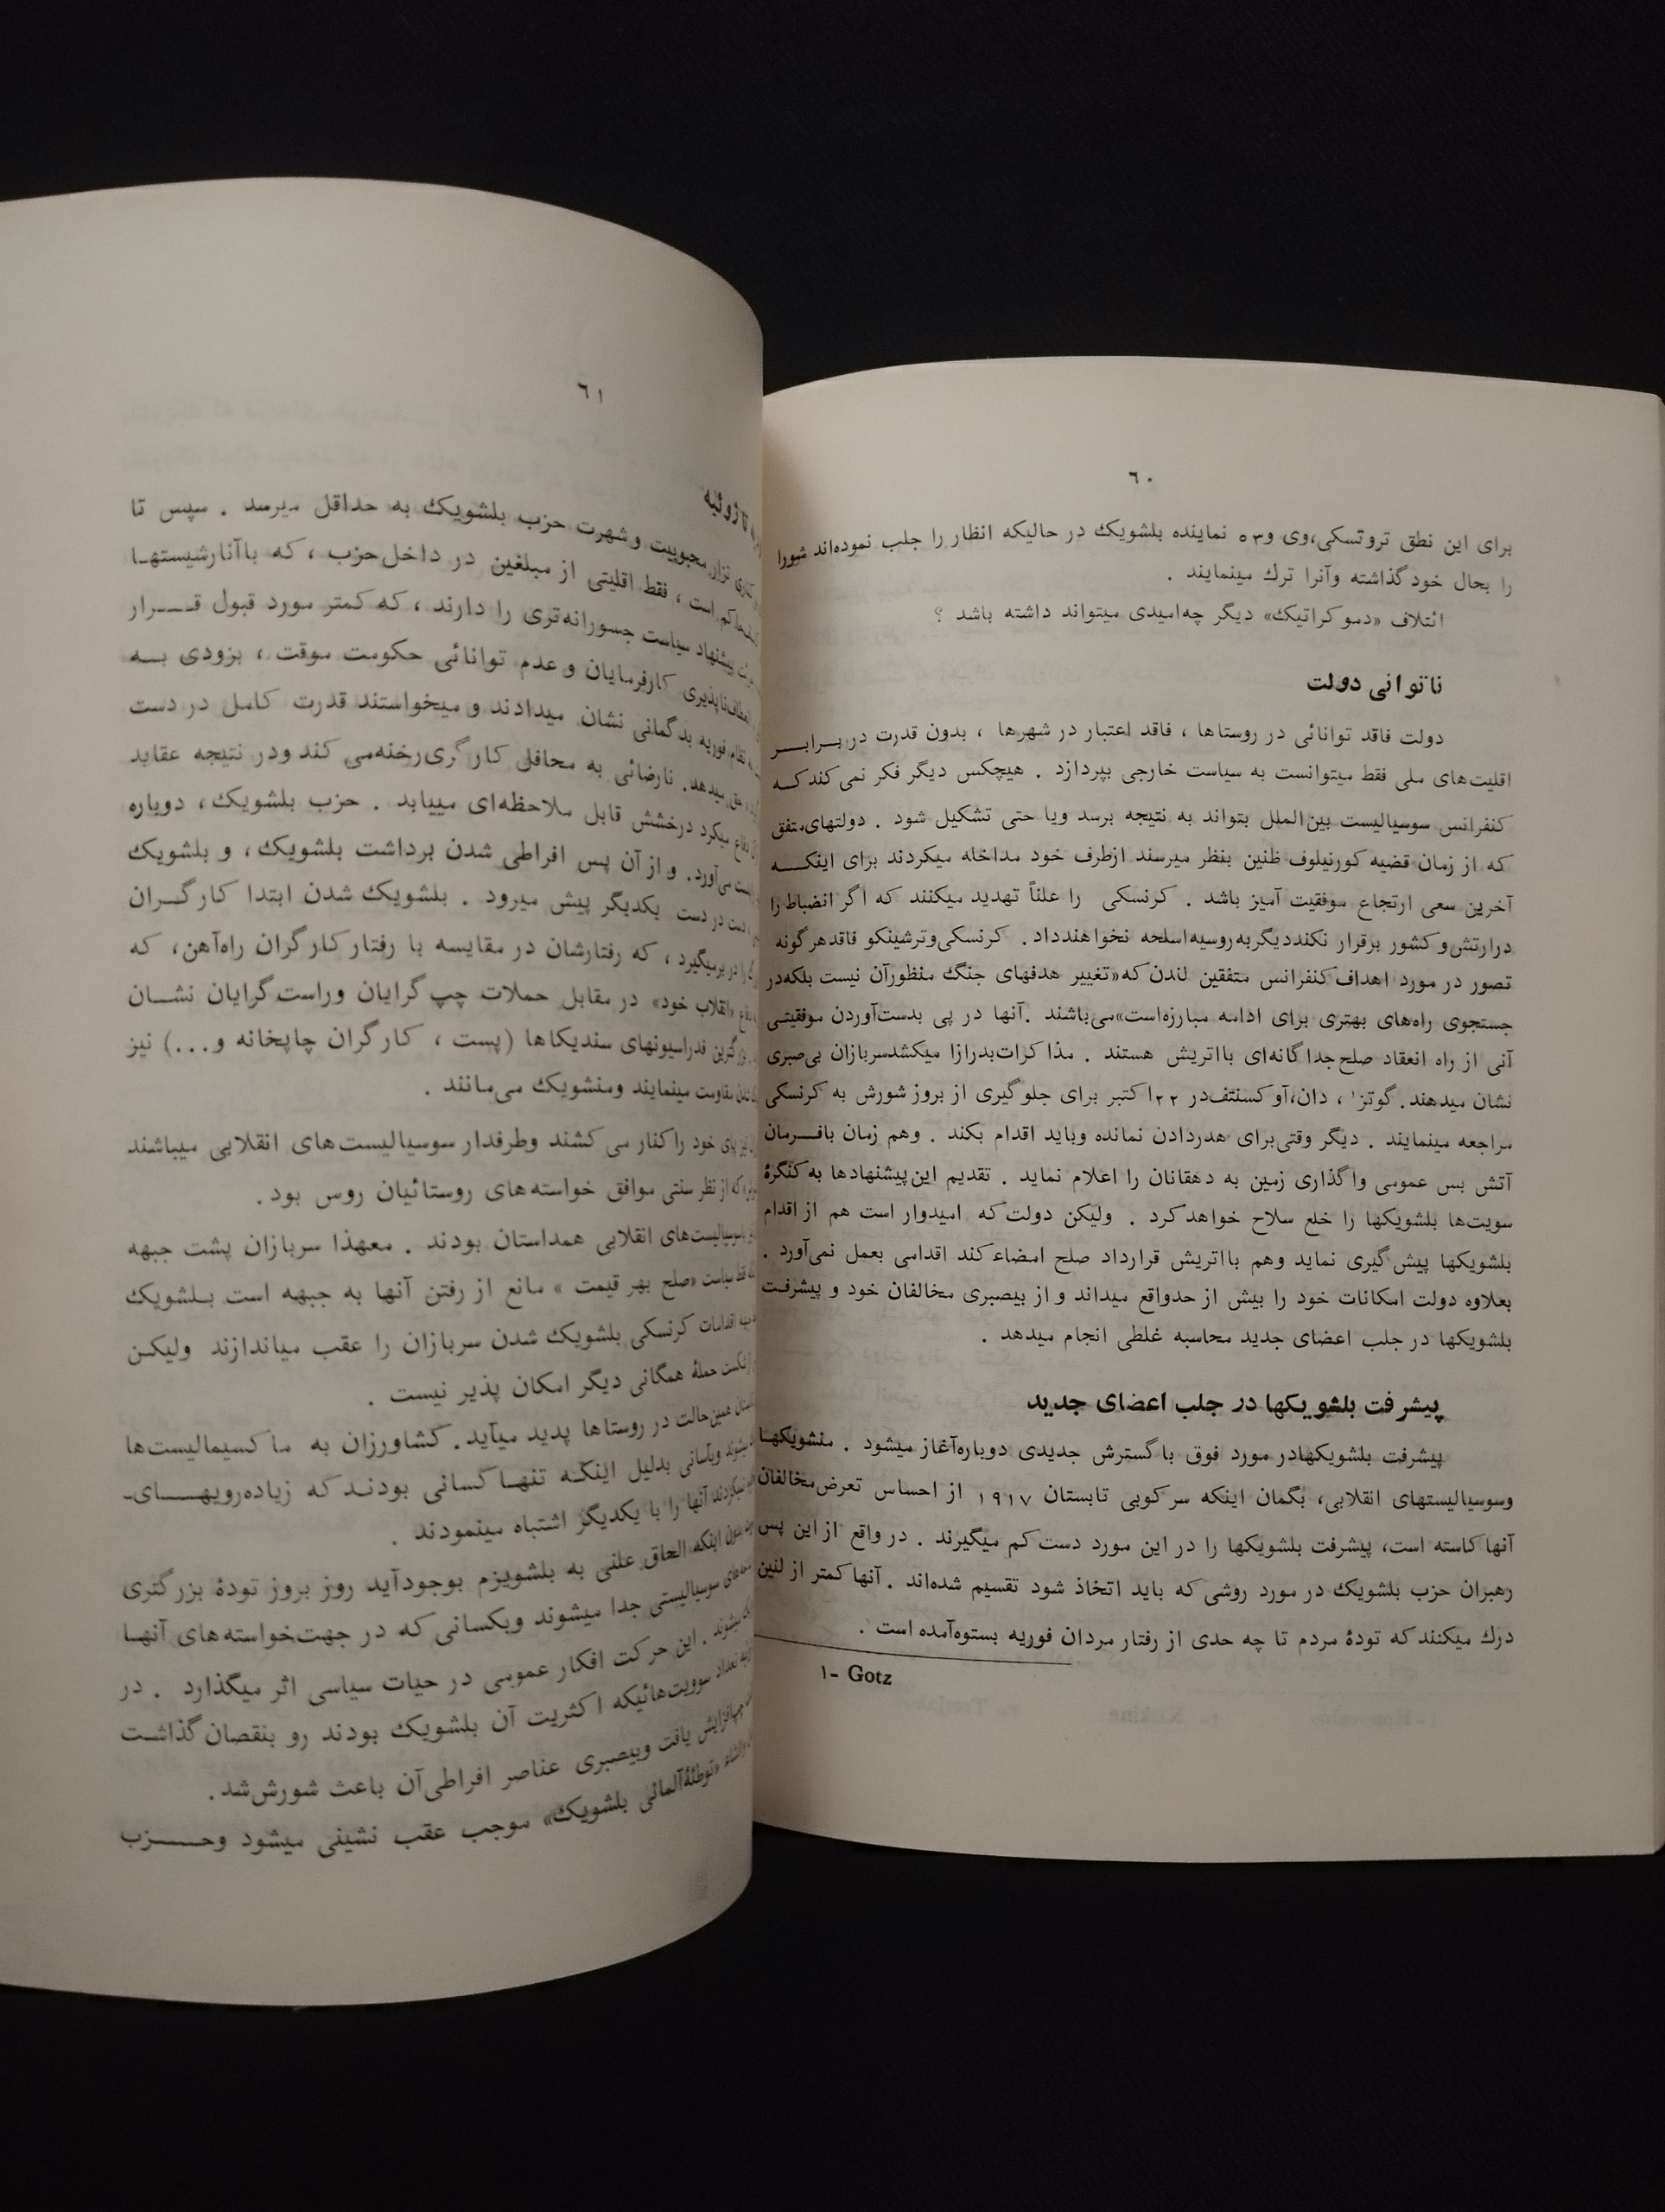 ٦٠
برای این نطق تروتسکی،وی و٥٣ نماینده بلشویک در حالیکه انظار را جلب نموده‌اند شورا
را بحال خود گذاشته وآنرا ترك مینمایند .
ائتلاف «دموکراتیک» دیگر چه‌امیدی میتواند داشته باشد ؟
ناتوانی دولت
دولت فاقد توانائی در روستاها ، فاقد اعتبار در شهرها ، بدون قدرت در برابر
اقلیت‌های ملی فقط میتوانست به سیاست خارجی بپردازد . هیچکس دیگر فکر نمی‌کند که
کنفرانس سوسیالیست بین‌الملل بتواند به نتیجه برسد ویا حتی تشکیل شود . دولتهای‌متفق
که از زمان قضیه کورنیلوف ظنین بنظر میرسند ازطرف خود مداخله میکردند برای اینکه
آخرین سعی ارتجاع موفقیت آمیز باشد . کرنسکی را علناً تهدید میکنند که اگر انضباط‌را
درارتش‌و کشور برقرار نکنددیگربه‌روسیه‌اسلحه نخواهندداد. کرنسکی‌وترشینکو فاقدهرگونه
تصور در مورد اهداف کنفرانس متفقین لندن که«تغییر هدفهای جنگ منظورآن نیست بلکه‌در
جستجوی راه‌های بهتری برای ادامه مبارزه‌است»می‌باشند .آنها در پی بدست‌آوردن موفقیتی
آنی از راه انعقاد صلح‌جداگانه‌ای بااتریش هستند . مذاکرات‌بدرازا میکشدسربازان بی‌صبری
نشان میدهند.گوتز١ ، دان،آوکسنتف‌در ٢٢اکتبر برای جلوگیری از بروز شورش به کرنسکی
مراجعه مینمایند . دیگر وقتی‌برای هدردادن نمانده وباید اقدام بکند . وهم زمان بافرمان
آتش بس عمومی واگذاری زمین به دهقانان را اعلام نماید . تقدیم این‌پیشنهادها به‌کنگرهٔ
سویت‌ها بلشویکها را خلع سلاح خواهدکرد . ولیکن دولت‌که امیدوار است هم از اقدام
بلشویکها پیش‌گیری نماید وهم بااتریش قرارداد صلح امضاءکند اقدامی بعمل نمی‌آورد .
بعلاوه دولت امکانات خود را بیش از حدواقع میداند و از بیصبری مخالفان خود و پیشرفت
بلشویکها در جلب اعضای جدید محاسبه غلطی انجام میدهد .
پیشرفت بلشویکها در جلب اعضای جدید
پیشرفت بلشویکهادر مورد فوق با گسترش جدیدی دوباره‌آغاز میشود . منشویکها
وسوسیالیستهای انقلابی، بگمان اینکه سرکوبی تابستان ١٩١٧ از احساس تعرض‌مخالفان
آنها کاسته است، پیشرفت بلشویکها را در این مورد دست‌کم میگیرند . در واقع از این پس
رهبران حزب بلشویک در مورد روشی‌که باید اتخاذ شود تقسیم شده‌اند .آنها کمتر از لنین
درك میکنند که تودهٔ مردم تا چه حدی از رفتار مردان فوریه بستوه‌آمده است .
١- Gotz
٦١
تا ژوئیه
محبوبیت وشهرت حزب بلشویک به حداقل میرسد . سپس تا
است ، فقط اقلیتی از مبلغین در داخل‌حزب ، که باآنارشیستها
پیشنهاد سیاست جسورانه‌تری را دارند ، که کمتر مورد قبول قرار
کارفرمایان وعدم توانائی حکومت موقت ، بزودی به
فوریه بدگمانی نشان میدادند و میخواستند قدرت کامل در دست
میدهد. نارضائی به محافل کارگری‌رخنه‌می کند ودر نتیجه عقاید
میکرد درخشش قابل ملاحظه‌ای مییابد . حزب بلشویک، دوباره
می‌آورد. و از آن پس افراطی شدن برداشت بلشویک، و بلشویک
دست در دست یکدیگر پیش میرود . بلشویک شدن ابتدا کارگران
را دربرمیگیرد ، که رفتارشان در مقایسه با رفتارکارگران راه‌آهن، که
«انقلاب خود» در مقابل حملات چپ گرایان وراست‌گرایان نشان
فدراسیونهای سندیکاها (پست ، کارگران چاپخانه و...) نیز
مقاومت مینمایند ومنشویک می‌مانند .
پای خود را کنار می کشند وطرفدار سوسیالیست‌های انقلابی میباشند
که از نظر سنتی موافق خواسته‌های روستائیان روس بود.
سوسیالیست‌های انقلابی همداستان بودند . معهذا سربازان پشت جبهه
فقط سیاست «صلح بهر قیمت » مانع از رفتن آنها به جبهه است بلشویک
اقدامات کرنسکی بلشویک شدن سربازان را عقب میاندازند ولیکن
شکست حملهٔ همگانی دیگر امکان پذیر نیست .
همین‌حالت در روستاها پدید میآید. کشاورزان به ماکسیمالیست‌ها
میشوند وبآسانی بدلیل اینکه تنها کسانی بودند که زیاده‌رویهای-
آنها را با یکدیگر اشتباه مینمودند .
بدون اینکه الحاق علنی به بلشویزم بوجودآید روز بروز تودهٔ بزرگتری
سوسیالیستی جدا میشوند وبکسانی که در جهت‌خواسته‌های آنها
میشوند . این حرکت افکار عمومی در حیات سیاسی اثر میگذارد . در
تعداد سوویت‌هائیکه اکثریت آن بلشویک بودند رو بنقصان گذاشت
افزایش یافت وبیصبری عناصر افراطی‌آن باعث شورش‌شد.
«توطئهٔ‌آلمانی بلشویک» موجب عقب نشینی میشود وحزب